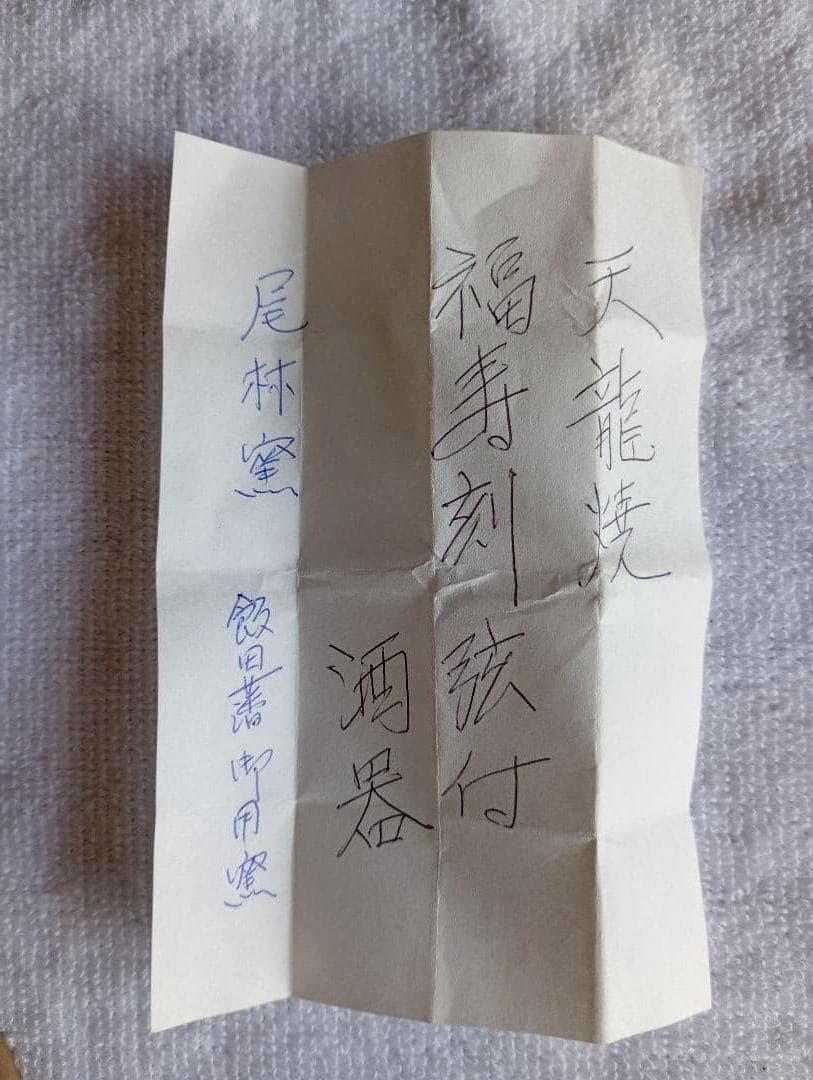 天龍焼
福寿刻弦付
酒器
尾林窯 飯田藩御用窯